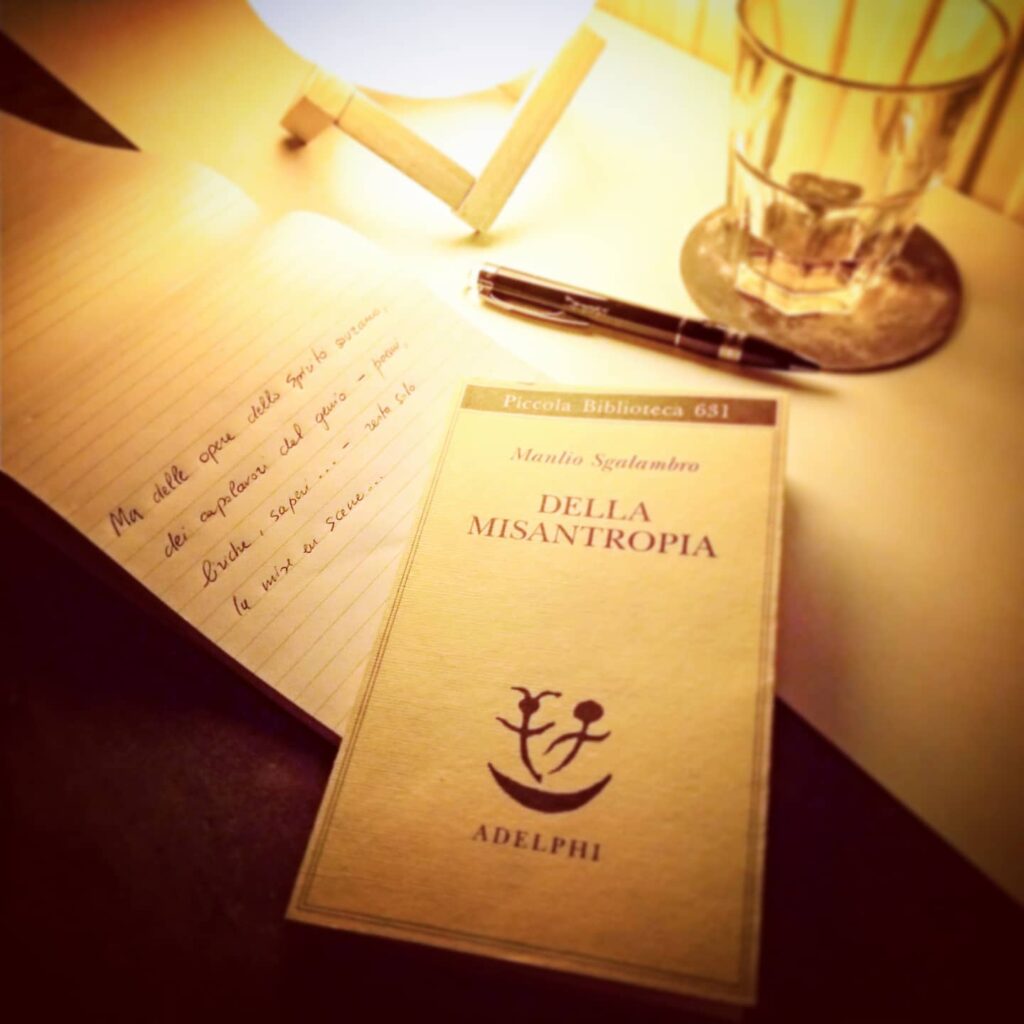 Ma delle opere dello spirito umano,
dei capolavori del genio – poemi,
liriche, saperi ... – resta solo
la mise en scène...
Piccola Biblioteca 631
Manlio Sgalambro
DELLA
MISANTROPIA
ADELPHI